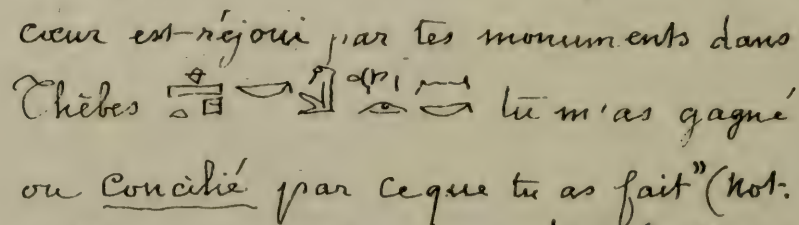 cœur est réjoui par tes monuments dans
Thèbes tu m'as gagné
ou Concilié par ce que tu as fait" (Not.